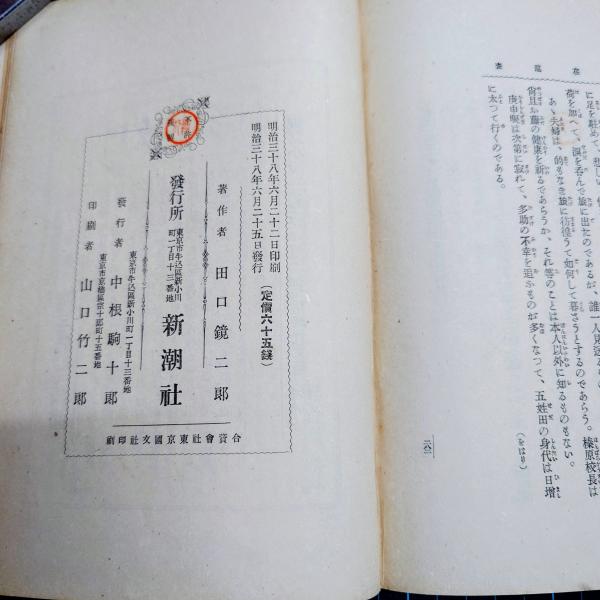 に足を駐めて、悲しい
荷を加へて、涙を呑んで旅に出たのであるが、誰一人見送る
あゝ夫婦は、的もなき旅に彷徨うて如何して暮さうとするのであらう。榛原校長は
尚且お藤の健康を祈るであらうか、それ等のことは本人以外に知るものもない。
庚申塚は次第に寂れて、多助の不幸を追ふものが多くなつて、五姓田の身代は日増
に太つて行くのである。
(をはり)
明治三十八年六月二十二日印刷
明治三十八年六月二十五日發行
(定價六十五錢)
著作者 田口鏡二郎
發行所
東京市牛込區新小川
町一丁目十三番地
新潮社
東京市牛込區新小川町一丁目十三番地
發行者 中根駒十郎
東京市京橋區宗十郎町十五番地
印刷者 山口竹二郎
合資會社東京國文社印刷